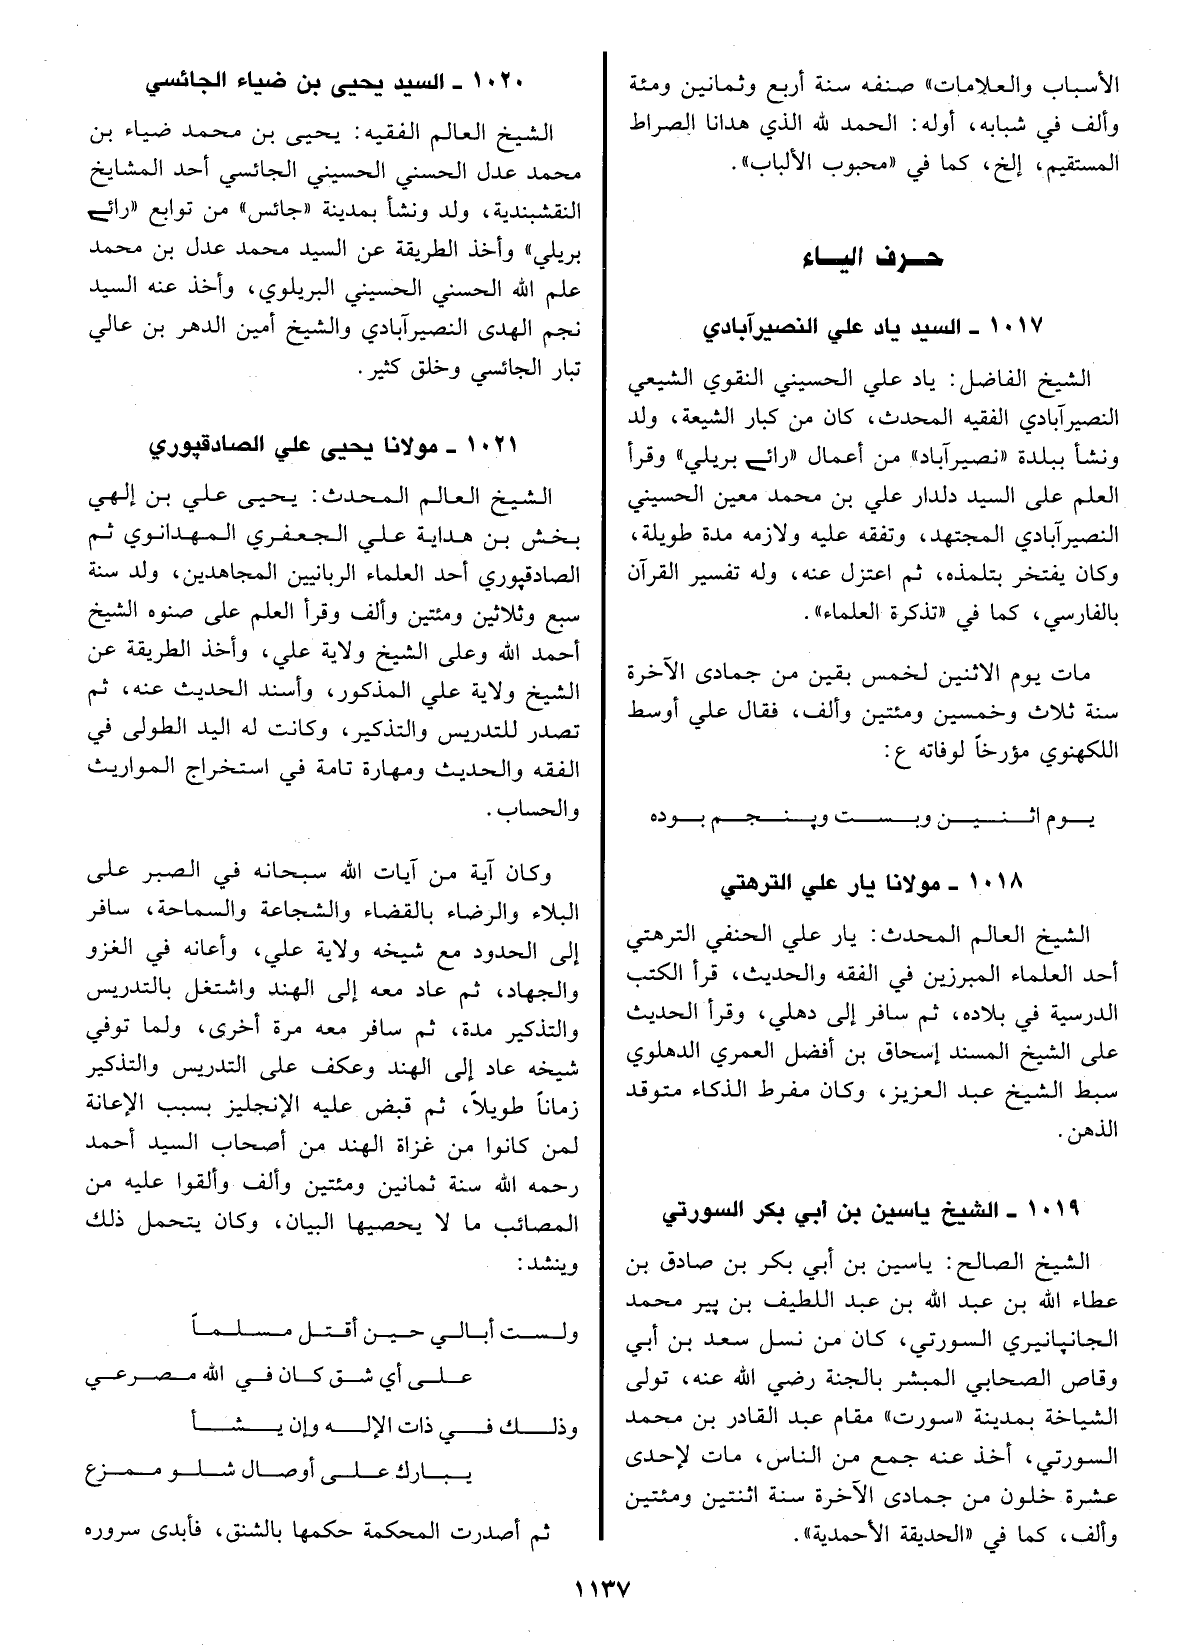 الأسباب والعلامات» صنفه سنة أربع وثمانين ومئة
وألف في شبابه، أوله: الحمد لله الذي هدانا الصراط
المستقيم، إلخ، كما في «محبوب الألباب».
حرف الياء
١٠١٧ ـ السيد ياد علي النصيرآبادي
الشيخ الفاضل: ياد علي الحسيني النقوي الشيعي
النصيرآبادي الفقيه المحدث، كان من كبار الشيعة، ولد
ونشأ ببلدة «نصيرآباد» من أعمال «رائے بريلي» وقرأ
العلم على السيد دلدار علي بن محمد معين الحسيني
النصيرآبادي المجتهد، وتفقه عليه ولازمه مدة طويلة،
وكان يفتخر بتلمذه، ثم اعتزل عنه، وله تفسير القرآن
بالفارسي، كما في «تذكرة العلماء».
مات يوم الاثنين لخمس بقين من جمادى الآخرة
سنة ثلاث وخمسين ومئتين وألف، فقال علي أوسط
اللكهنوي مؤرخاً لوفاته ع:
يوم اثنين وبست وپنجم بوده
١٠١٨ ـ مولانا يار علي الترهتي
الشيخ العالم المحدث: يار علي الحنفي الترهتي
أحد العلماء المبرزين في الفقه والحديث، قرأ الكتب
الدرسية في بلاده، ثم سافر إلى دهلي، وقرأ الحديث
على الشيخ المسند إسحاق بن أفضل العمري الدهلوي
سبط الشيخ عبد العزيز، وكان مفرط الذكاء متوقد
الذهن.
١٠١٩ ـ الشيخ ياسين بن أبي بكر السورتي
الشيخ الصالح: ياسين بن أبي بكر بن صادق بن
عطاء الله بن عبد الله بن عبد اللطيف بن پير محمد
الجانپانيري السورتي، كان من نسل سعد بن أبي
وقاص الصحابي المبشر بالجنة رضي الله عنه، تولى
الشياخة بمدينة «سورت» مقام عبد القادر بن محمد
السورتي، أخذ عنه جمع من الناس، مات لإحدى
عشرة خلون من جمادى الآخرة سنة اثنتين ومئتين
وألف، كما في «الحديقة الأحمدية».
١٠٢٠ ـ السيد يحيى بن ضياء الجائسي
الشيخ العالم الفقيه: يحيى بن محمد ضياء بن
محمد عدل الحسني الحسيني الجائسي أحد المشايخ
النقشبندية، ولد ونشأ بمدينة «جائس» من توابع «رائے
بريلي» وأخذ الطريقة عن السيد محمد عدل بن محمد
علم الله الحسني الحسيني البريلوي، وأخذ عنه السيد
نجم الهدى النصيرآبادي والشيخ أمين الدهر بن عالي
تبار الجائسي وخلق كثير.
١٠٢١ ـ مولانا يحيى علي الصادقپوري
الشيخ العالم المحدث: يحيى علي بن إلهي
بخش بن هداية علي الجعفري المهدانوي ثم
الصادقپوري أحد العلماء الربانيين المجاهدين، ولد سنة
سبع وثلاثين ومئتين وألف وقرأ العلم على صنوه الشيخ
أحمد الله وعلى الشيخ ولاية علي، وأخذ الطريقة عن
الشيخ ولاية علي المذكور، وأسند الحديث عنه، ثم
تصدر للتدريس والتذكير، وكانت له اليد الطولى في
الفقه والحديث ومهارة تامة في استخراج المواريث
والحساب.
وكان آية من آيات الله سبحانه في الصبر على
البلاء والرضاء بالقضاء والشجاعة والسماحة، سافر
إلى الحدود مع شيخه ولاية علي، وأعانه في الغزو
والجهاد، ثم عاد معه إلى الهند واشتغل بالتدريس
والتذكير مدة، ثم سافر معه مرة أخرى، ولما توفي
شيخه عاد إلى الهند وعكف على التدريس والتذكير
زماناً طويلاً، ثم قبض عليه الإنجليز بسبب الإعانة
لمن كانوا من غزاة الهند من أصحاب السيد أحمد
رحمه الله سنة ثمانين ومئتين وألف وألقوا عليه من
المصائب ما لا يحصيها البيان، وكان يتحمل ذلك
وينشد:
ولست أبالي حين أقتل مسلماً
على أي شق كان في الله مصرعي
وذلك في ذات الإله وإن يشأ
يبارك على أوصال شلو ممزع
ثم أصدرت المحكمة حكمها بالشنق، فأبدى سروره
١١٣٧